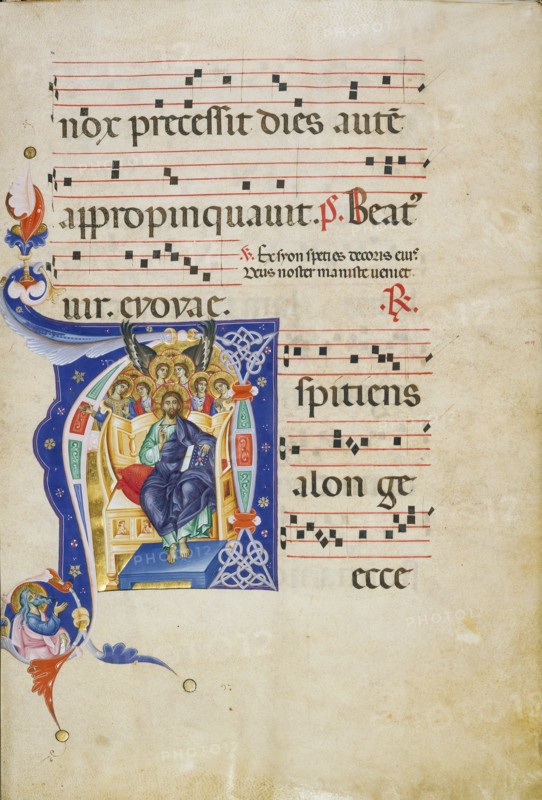 nox precessit dies autē
appropinquauit. P̄s. Beatꝰ
℣. Ex syon species decoris eiuſ.
Deus noster manifste ueniet.
uir. evovae. ℟.
A
spitiens
alon ge
ecce
PHOTO12